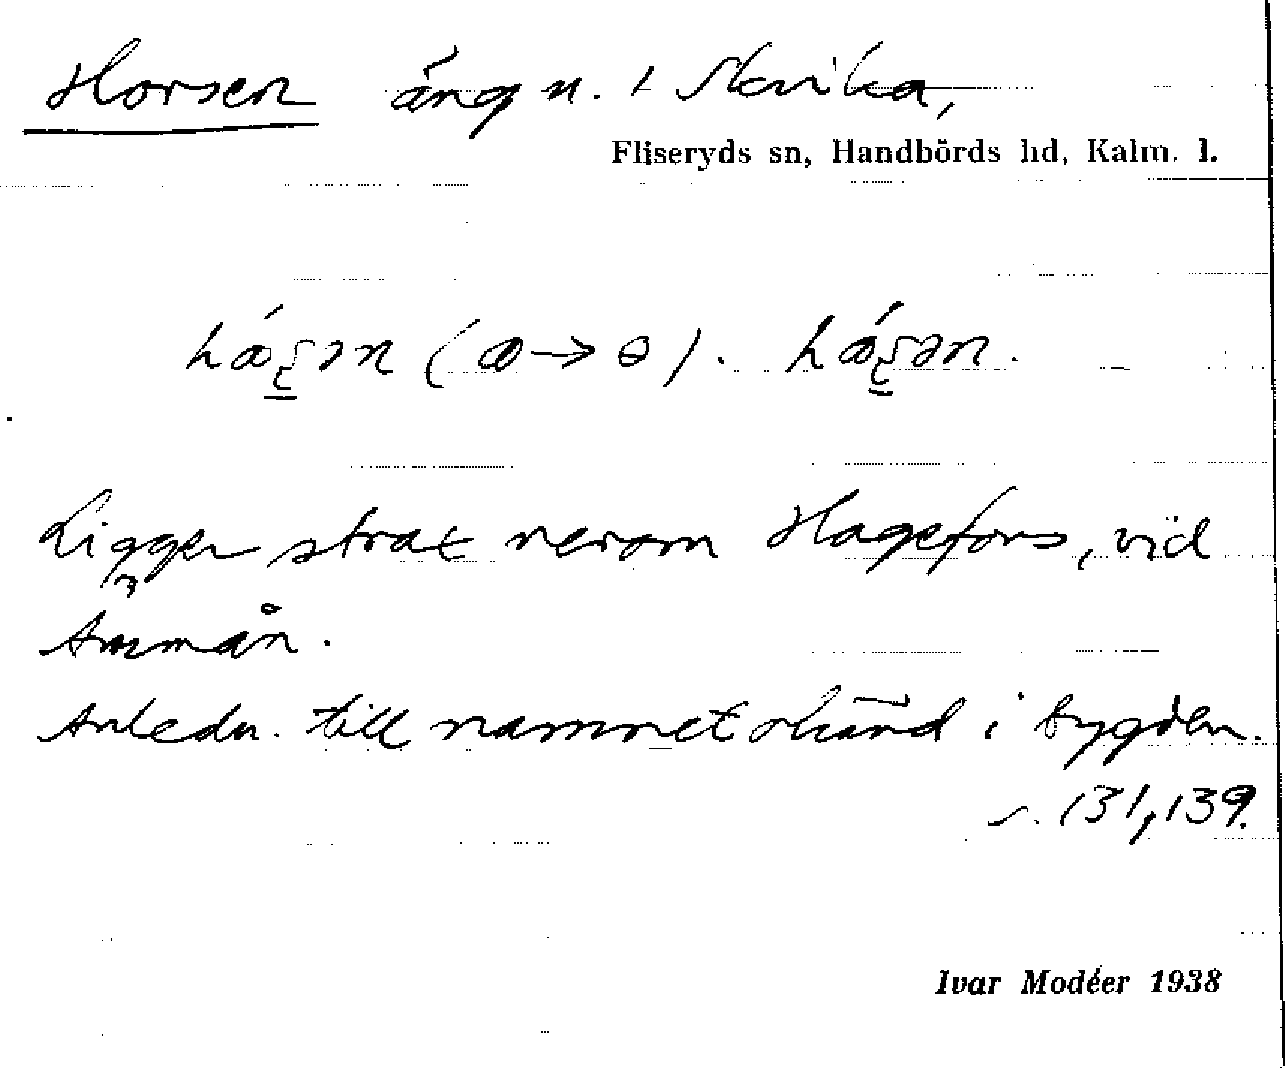 Horsen äng n. i
Fliseryds sn, Handbörds hd, Kalm. l.
Ligger strax nerom Hagefors, vid
Ammån.
Anledn. till namnet okänd i bygden.
s. 131, 139.
Ivar Modéer 1938